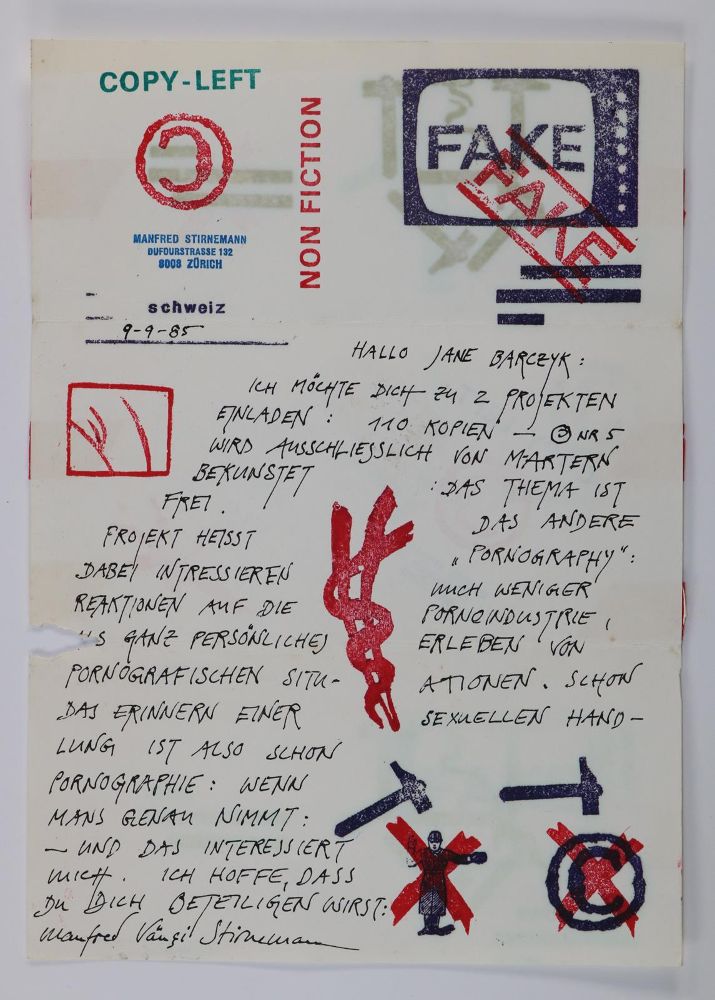 COPY-LEFT
NON FICTION
FAKE
FAKE
MANFRED STIRNEMANN
DUFOURSTRASSE 132
8008 ZÜRICH
schweiz
9-9-85
HALLO JANE BARCZYK:
ICH MÖCHTE DICH ZU 2 PROJEKTEN
EINLADEN: 110 KOPIEN —
NR 5
WIRD AUSSCHLIESSLICH VON MARTERN
BEKUNSTET : DAS THEMA IST
FREI. DAS ANDERE
PROJEKT HEISST „PORNOGRAPHY“:
DABEI INTRESSIEREN MICH WENIGER
REAKTIONEN AUF DIE PORNOINDUSTRIE,
GANZ PERSÖNLICHES ERLEBEN VON
PORNOGRAFISCHEN SITU- ATIONEN. SCHON
DAS ERINNERN EINER SEXUELLEN HAND-
LUNG IST ALSO SCHON
PORNOGRAPHIE: WENN
MANS GENAU NIMMT:
— UND DAS INTERESSIERT
MICH. ICH HOFFE, DASS
DU DICH BETEILIGEN WIRST:
Manfred Vänçi Stirnemann
C